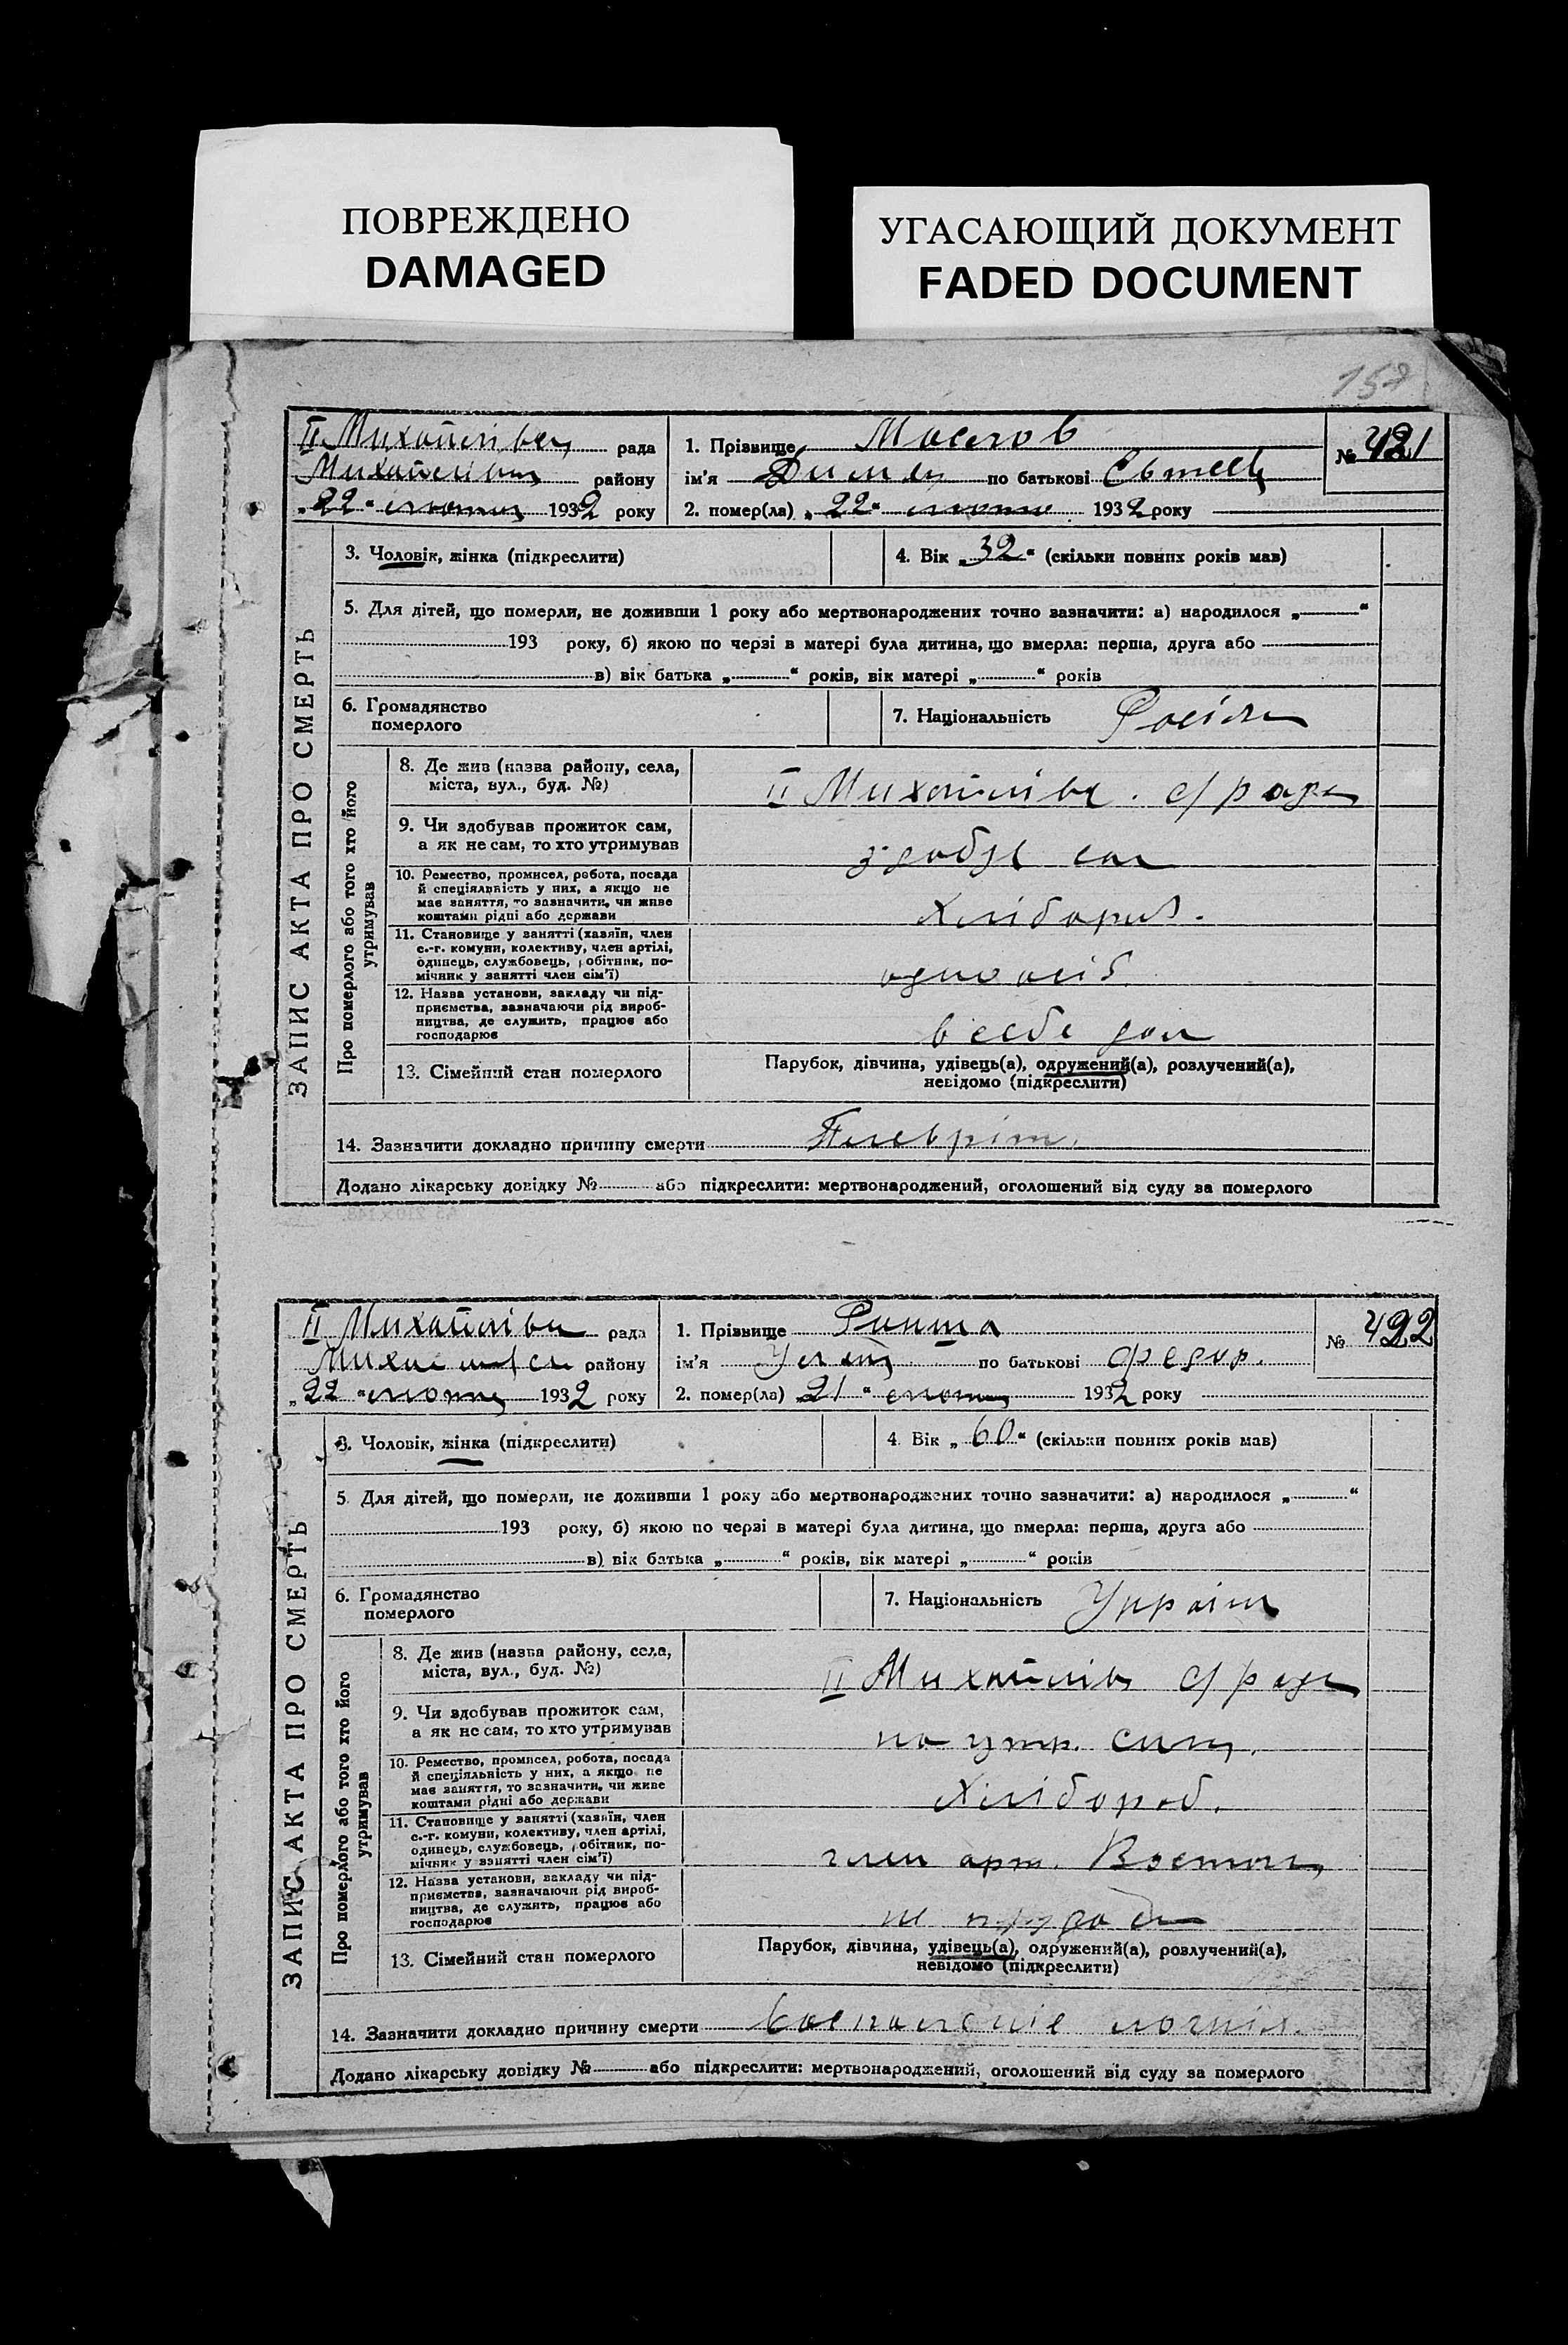 ПОВРЕЖДЕНО
DAMAGED
УГАСАЮЩИЙ ДОКУМЕНТ
FADED DOCUMENT
157
ЗАПИС АКТА ПРО СМЕРТЬ
II Михайлівка рада
Михайлівка району
„22“ лютня 1932 року
1. Прізвище Маслов
ім'я по батькові
2. помер(ла) „22“ лютня 1932 року
№ 421
3. Чоловік, жінка (підкреслити)
4. Вік „32“ (скільки повних років мав)
5. Для дітей, що померли, не доживши 1 року або мертвонароджених точно зазначити: а) народилося „ “
193 року, б) якою по черзі в матері була дитина, що вмерла: перша, друга або
в) вік батька „ “ років, вік матері „ “ років
6. Громадянство
померлого
7. Національність Росіян
Про померлого або того хто його
утримував
8. Де жив (назва району, села,
міста, вул., буд. №)
II Михайлівк. с/рада
9. Чи здобував прожиток сам,
а як не сам, то хто утримував
здобув сам
10. Ремество, промисел, робота, посада
й спеціяльність у них, а якщо не
має заняття, то зазначити, чи живе
коштами рідні або держави
Хлібороб.
11. Становище у занятті (хазяїн, член
с.-г. комуни, колективу, член артілі,
одинець, службовець, робітник, по-
мічник у занятті член сім'ї)
одноосіб.
12. Назва установи, закладу чи під-
приємства, зазначаючи рід вироб-
ництва, де служить, працює або
господарює
в себе дом
13. Сімейний стан померлого
Парубок, дівчина, удівець(а), одружений(а), розлучений(а),
невідомо (підкреслити)
14. Зазначити докладно причину смерти Плевріт.
Додано лікарську довідку № або підкреслити: мертвонароджений, оголошений від суду за померлого
ЗАПИС АКТА ПРО СМЕРТЬ
II Михайлівка рада
району
„22“ лютня 1932 року
1. Прізвище
ім'я по батькові Федор.
2. помер(ла) „21“ лютня 1932 року
№ 422
3. Чоловік, жінка (підкреслити)
4. Вік „60“ (скільки повних років мав)
5. Для дітей, що померли, не доживши 1 року або мертвонароджених точно зазначити: а) народилося „ “
193 року, б) якою по черзі в матері була дитина, що вмерла: перша, друга або
в) вік батька „ “ років, вік матері „ “ років
6. Громадянство
померлого
7. Національність Україн
Про померлого або того хто його
утримував
8. Де жив (назва району, села,
міста, вул., буд. №)
II Михайлів с/рада
9. Чи здобував прожиток сам,
а як не сам, то хто утримував
на утр. сина.
10. Ремество, промисел, робота, посада
й спеціяльність у них, а якщо не
має заняття, то зазначити, чи живе
коштами рідні або держави
Хлібороб.
11. Становище у занятті (хазяїн, член
с.-г. комуни, колективу, член артілі,
одинець, службовець, робітник, по-
мічник у занятті член сім'ї)
член арт. Восток
12. Назва установи, закладу чи під-
приємства, зазначаючи рід вироб-
ництва, де служить, працює або
господарює
13. Сімейний стан померлого
Парубок, дівчина, удівець(а), одружений(а), розлучений(а),
невідомо (підкреслити)
14. Зазначити докладно причину смерти
Додано лікарську довідку № або підкреслити: мертвонароджений, оголошений від суду за померлого